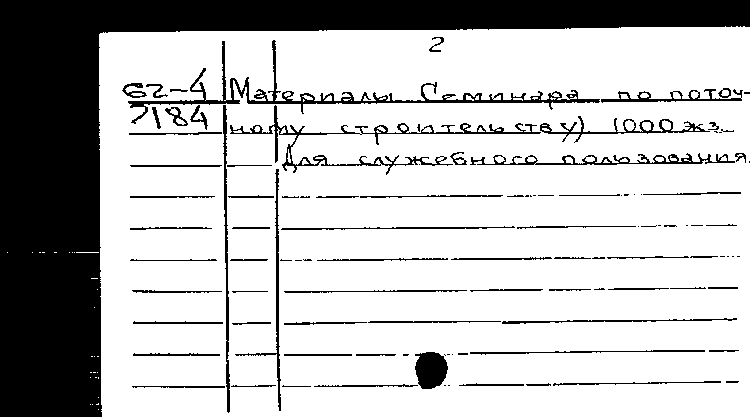 2
62-4 Материалы Семинара по поточ-
7184 ному строительству) 1000 экз.
Для служебного пользования.